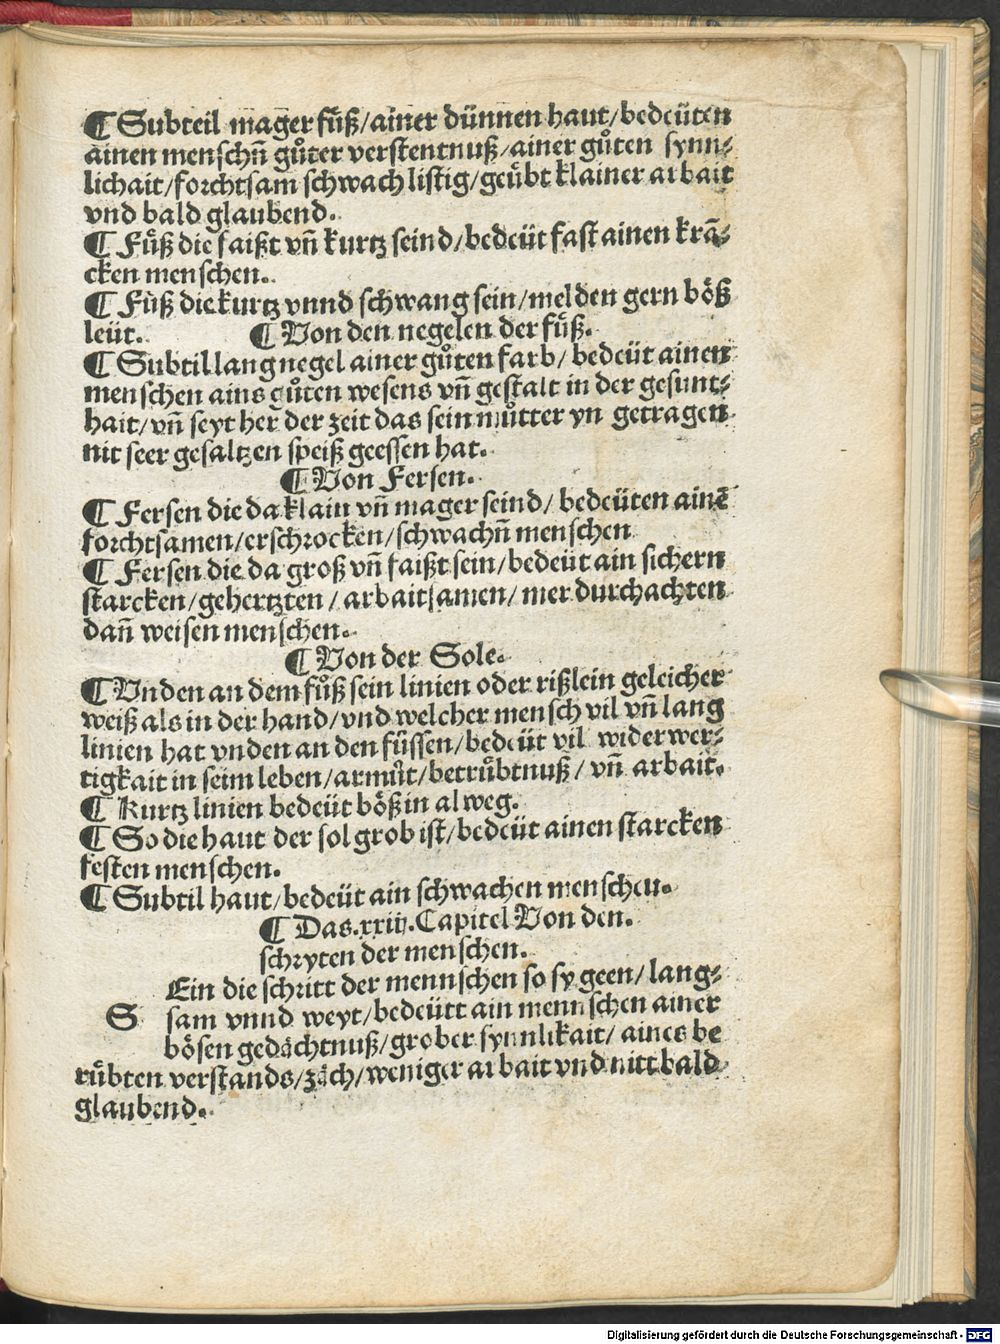 ¶ Subteil mager fuͤß/ainer dünnen haut/bedeüten
ainen menschñ guͦter verstentnuß/ainer guͦten synn⸗
lichait/forchtsam schwach listig/geuͤbt klainer arbait
vnd bald glaubend.
¶ Fuͤß die faißt vñ kurtz seind/bedeüt fast ainen krã⸗
cken menschen.
¶ Fuͤß die kurtz vnnd schwang sein/melden gern boͤß
leüt. ¶ Von den negelen der fuͤß.
¶ Subtil lang negel ainer guͦten farb/bedeüt ainen
menschen ains guͦten wesens vñ gestalt in der gesunt⸗
hait/vñ seyt her der zeit das sein muͦtter yn getragen
nit seer gesaltzen speiß geessen hat.
¶ Von Fersen.
¶ Fersen die da klain vñ mager seind/bedeüten ainẽ
forchtsamen/erschrocken/schwachñ menschen
¶ Fersen die da groß vñ faißt sein/bedeüt ain sichern
starcken/gehertzten/arbaitsamen/mer durchachten
dañ weisen menschen.
¶ Von der Sole.
¶ Vnden an dem fuͦß sein linien oder rißlein geleicher
weiß als in der hand/vnd welcher mensch vil vñ lang
linien hat vnden an den fuͤssen/bedeüt vil widerwer⸗
tigkait in seim leben/armuͦt/betruͤbtnuß/vñ arbait.
¶ Kurtz linien bedeüt boͤß in alweg.
¶ So die haut der sol grob ist/bedeüt ainen starcken
festen menschen.
¶ Subtil haut/bedeüt ain schwachen menschen.
¶ Das.xxiij.Capitel Von den.
schryten der menschen.
Ein die schritt der mennschen so sy geen/lang⸗
S sam vnnd weyt/bedeütt ain mennschen ainer
boͤsen gedaͤchtnuß/grober synnlikait/aines be
ruͤbten verstands/zaͤch/weniger arbait vnd nitt bald
glaubend.
Digitalisierung gefördert durch die Deutsche Forschungsgemeinschaft - DFG